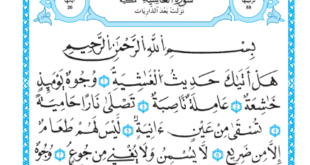 سُورَةُ الْغَاشِيَةِ مَكِّيَّةٌ
نزلت بعد الذاريات
بِسْمِ ٱللَّهِ ٱلرَّحْمَٰنِ ٱلرَّحِيمِ
هَلْ أَتَىٰكَ حَدِيثُ ٱلْغَٰشِيَةِ ١ وُجُوهٌ يَوْمَئِذٍ
خَٰشِعَةٌ ٢ عَامِلَةٌ نَّاصِبَةٌ ٣ تَصْلَىٰ نَارًا حَامِيَةً
٤ تُسْقَىٰ مِنْ عَيْنٍ ءَانِيَةٍ ٥ لَّيْسَ لَهُمْ طَعَامٌ
إِلَّا مِن ضَرِيعٍ ٦ لَّا يُسْمِنُ وَلَا يُغْنِى مِن جُوعٍ ٧ وُجُوهٌ